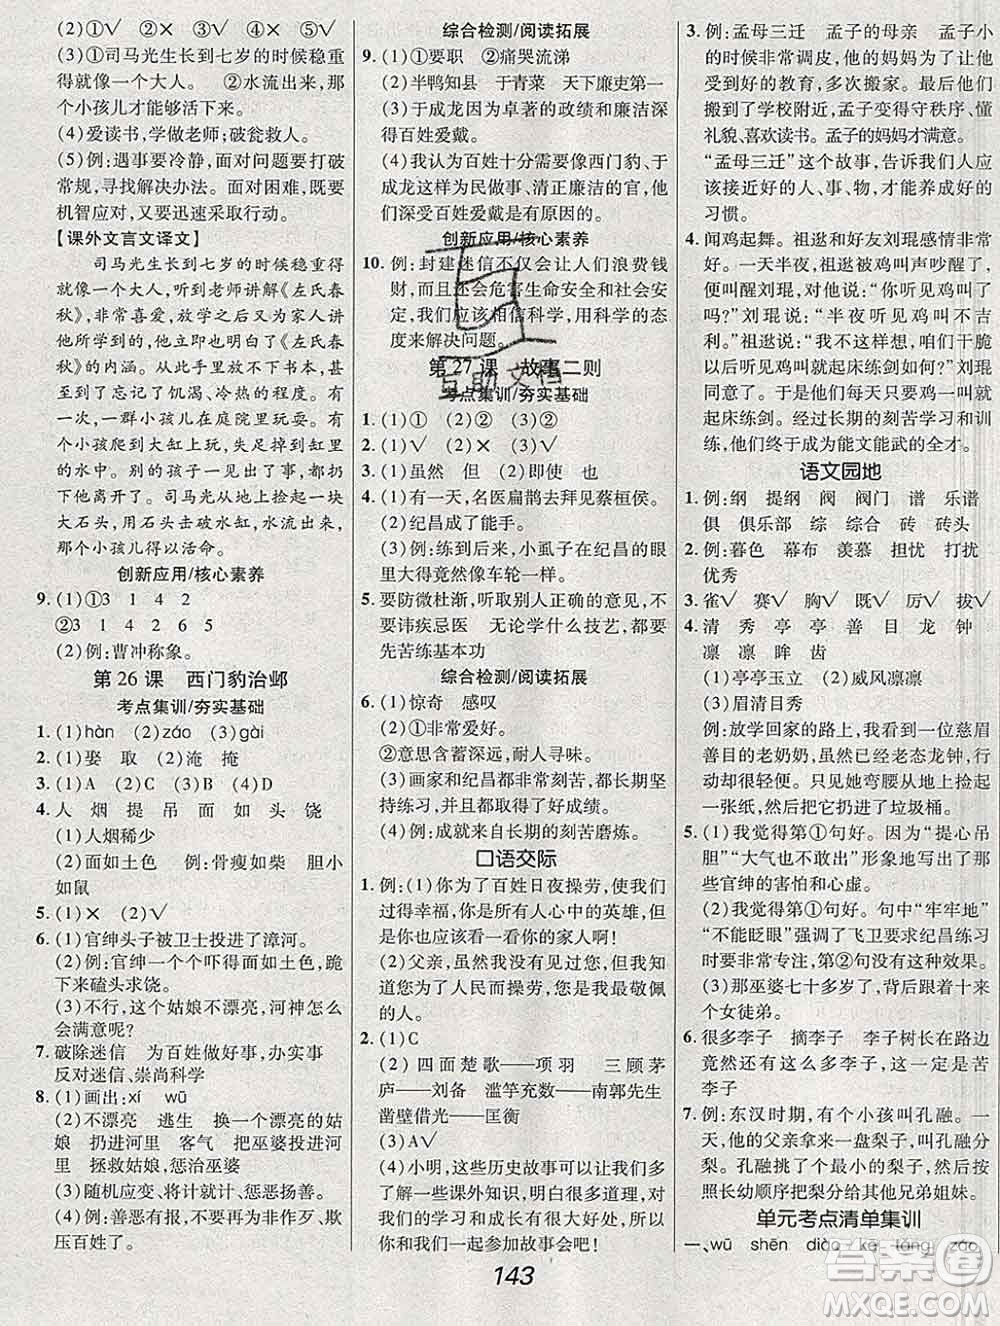 (2)①√ ②√ ③√ ④√ ⑤√
(3)①司马光生长到七岁的时候稳重
得就像一个大人。 ②水流出来,那
个小孩儿才能够活下来。
(4)爱读书,学做老师;破瓮救人。
(5)例:遇事要冷静,面对问题打破
常规,寻找解决办法。面对困难,既要
机智应对,又要迅速采取行动。
【课外文言文译文】
司马光生长到七岁的时候稳重得
就像一个大人,听到老师讲解《左氏春
秋》,非常喜爱,放学之后又为家人讲
他所学到的,因此他也了解了《左氏春
秋》的大义。从此手里不放下书本,甚
至到了忘记了饥渴、冷热的程度。有
一次,一群小孩儿在庭院里玩,一个
小孩爬到大缸上玩,失足掉到缸中
的水中。别的孩子一见出了事,都吓
跑了。司马光从地上捡起一块
大石头,用石头击破水缸,水流出来,
那个小孩儿得以活命。
创新应用/核心素养
9. (1)①3 1 4 2
②3 1 4 2 6 5
(2)例:曹冲称象。
第 26 课 西门豹治邺
考点集训/夯实基础
1. (1)hàn (2)záo (3)gài
2. (1)娶 取 (2)淹 掩
3. (1)A (2)C (3)B (4)D
4. 人 烟 提 吊 面 如 头 饶
(1)人烟稀少
(2)面如土色 例:骨瘦如柴 胆小
如鼠
5. (1)× (2)√
6. (1)官绅头子被卫士投进了漳河。
(2)例:官绅一个个吓得面如土色,跪
下来磕头求饶。
(3)不行,这个姑娘不漂亮,河神怎么
会满意呢?
7. 破除迷信 为百姓做好事、办实事
反对迷信、崇尚科学
8. (1)画出:xí wū
(2)不漂亮 逃生 换一个漂亮的姑
娘 扔进河里 客气 把巫婆投进河
里 拯救姑娘,惩治巫婆
(3)随机应变、将计就计、惩恶扬善。
(4)例:善恶有报,不要为非作歹、欺
压百姓。
综合检测/阅读拓展
9. (1)①要职 ②痛哭流涕
(2)半鸭知县 于青菜 天下廉吏第一
(3)于成龙因为卓著的政绩和廉洁
得百姓爱戴。
(4)我认为百姓十分需要像西门豹、于
成龙这样为民做事、清正廉洁的官,他
们深受百姓爱戴是有原因的。
创新应用/核心素养
10. 例:封建迷信不仅会让人们浪费钱
财,而且还会危害生命安全和社会安
定,我们应该相信科学,用科学的态
度来解决问题。
第 27 课 故事二则
考点集训/夯实基础
1. (1)① (2)② (3)②
2. (1)√ (2)× (3)√
3. (1)虽然 但 (2)即使 也
4. (1)有一天,名医扁鹊去拜见蔡桓侯。
(2)纪昌成了能手。
(3)例:练到后来,小虱子在纪昌的眼
里大得竟然像车轮一样。
5. 要防微杜渐,听取别人的意见,不
要讳疾忌医 无论学什么技艺,都要
先苦练基本功
综合检测/阅读拓展
6. (1)惊奇 感叹
(2)①非常爱好。
②意思含蓄深远,耐人寻味。
(3)画家和纪昌都非常刻苦,都能够
坚持练习,并最终取得了好成绩。
(4)例:成就来自长期的刻苦磨炼。
口语交际
1. 例:(1)你为了百姓日夜操劳,为了他们
过得幸福,你是所有人心中的英雄,但
是你也应该看一看你的家人啊!
(2)父亲,虽然我没见过你,但我知
道您为了人民而操劳,您是我最敬佩
的人。
2. (1)C
(2)四面楚歌——项羽 三顾茅
庐——刘备 滥竽充数——南郭先生
凿壁借光——匡衡
(3)A√
(4)小明,这些历史故事可以让我们
了解一些课外知识,明白更多道理,对
我们的学习和成长有很大好处,所以
和我们一起参加故事会吧!
3. 例:孟母三迁 孟子的母亲 孟子小
的时候非常调皮,他的妈妈为了让他
受到好的教育,多次搬家。他们后来
搬到了学校附近,孟子变得守秩序、懂
礼貌、喜欢读书。孟子的妈妈才满意。
“孟母三迁”这个故事,告诉我们人应
该接近好的人、事、物,才能养成好的
习惯。
4. 闻鸡起舞。祖逖和好友刘琨感情非常
好。一天半夜,祖逖被鸡叫声吵醒了,
便叫醒刘琨,对他说:“你听见鸡叫了
吗?”刘琨说:“半夜听见鸡叫不吉
利。”祖逖说:“我不这样想,咱们干脆
以后听见鸡叫就起床练剑如何?”刘琨
同意了。于是他们每天听见鸡叫就
起床练剑。经过长期的刻苦学习和训
练,他们终于成为能文能武的全才。
语文园地
1. 例:纲 提纲 阀 阀门 谱 乐谱
俱 俱乐部 综 综合 砖 砖头
2. 例:暮色 幕布 羡慕 担忧 打扰
优秀
3. 雀√ 赛√ 胸√ 既√ 厉√ 拔√
4. 清 秀 亭 亭 善 目 龙 钟
凛 凛 眸 齿
(1)亭亭玉立 (2)威风凛凛
(3)眉清目秀
例:放学回家的路上,我看到一位慈眉
善目的老奶奶,虽然已经老态龙钟,但
行动却很轻便。只见她弯腰从地上捡起
一张纸,然后把它扔进了垃圾桶。
5. (1)我觉得第①句好。因为“提心吊
胆”“大气也不敢出”形象地写出了那
些官绅的害怕和心虚。
(2)我觉得第①句好。句中“牢牢地”
“不能眨眼”强调了飞卫要求纪昌练习
时要非常专注,第②句没有这种效果。
(3)那巫婆七十多岁了,背后跟着十来个
女徒弟。
6. 很多李子 摘李子 李子树长在路边
竟然还有这么多李子,这一定是
苦李子
7. 例:东汉时期,有个小孩叫孔融。一
天,他的父亲拿来一盘梨子,叫孔融分
梨。孔融挑了个最小的梨子,其余
按照长幼顺序把梨分给其他兄弟姐妹。
单元考点清单集训
一、wū shēn diào kē táng záo
143
互助文档
答案圈
MXQE.COM